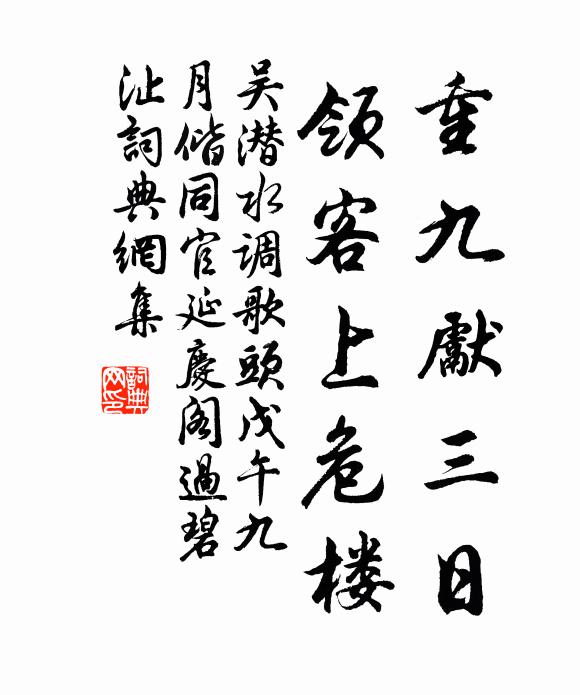 重九獻三日
領客上危楼
吴潜水调歌頭戊午九
月偕同官延慶阁過碧
沚詞典網集
詞典网印